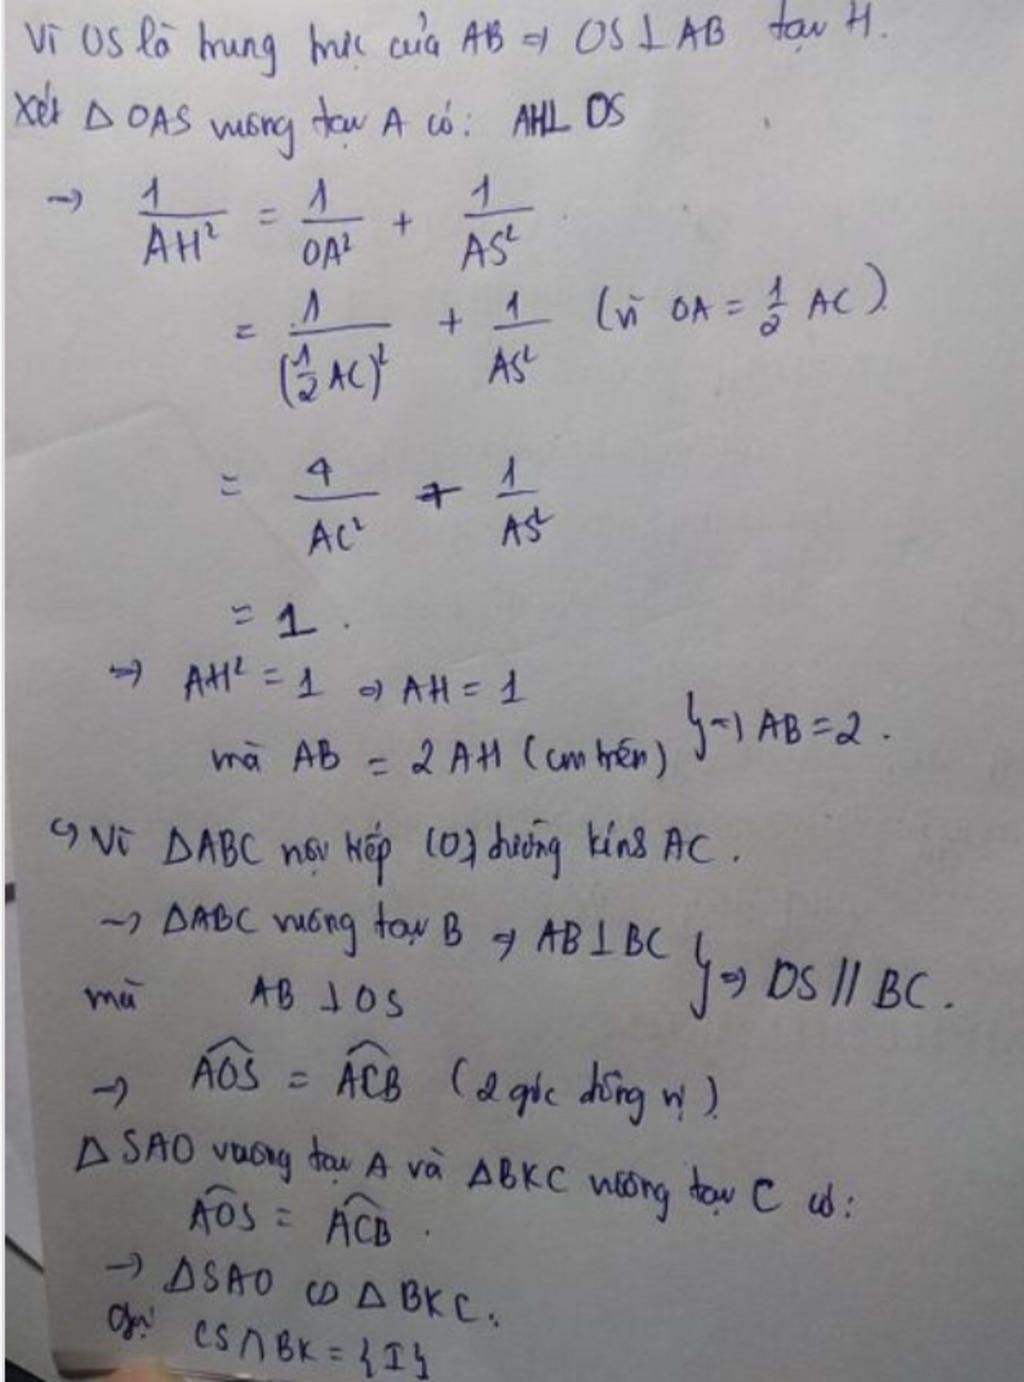 Vì OS là trung trực của AB => OS ⊥ AB tại H.
Xét Δ OAS vuông tại A có: AH ⊥ OS
→ 1/AH² = 1/OA² + 1/AS²
= 1/(1/2 AC)² + 1/AS² (vì OA = 1/2 AC)
= 4/AC² + 1/AS²
= 1.
=> AH² = 1 => AH = 1
mà AB = 2 AH (cm trên) } → AB = 2.
c, Vì ΔABC nội tiếp (O) đường kính AC.
→ ΔABC vuông tại B => AB ⊥ BC
mà AB ⊥ OS } => OS // BC.
→ AOS = ACB (2 góc đồng vị)
Δ SAO vuông tại A và ΔBKC vuông tại C có:
AOS = ACB.
→ ΔSAO ∽ Δ BKC.
Gọi CS ∩ BK = {I}